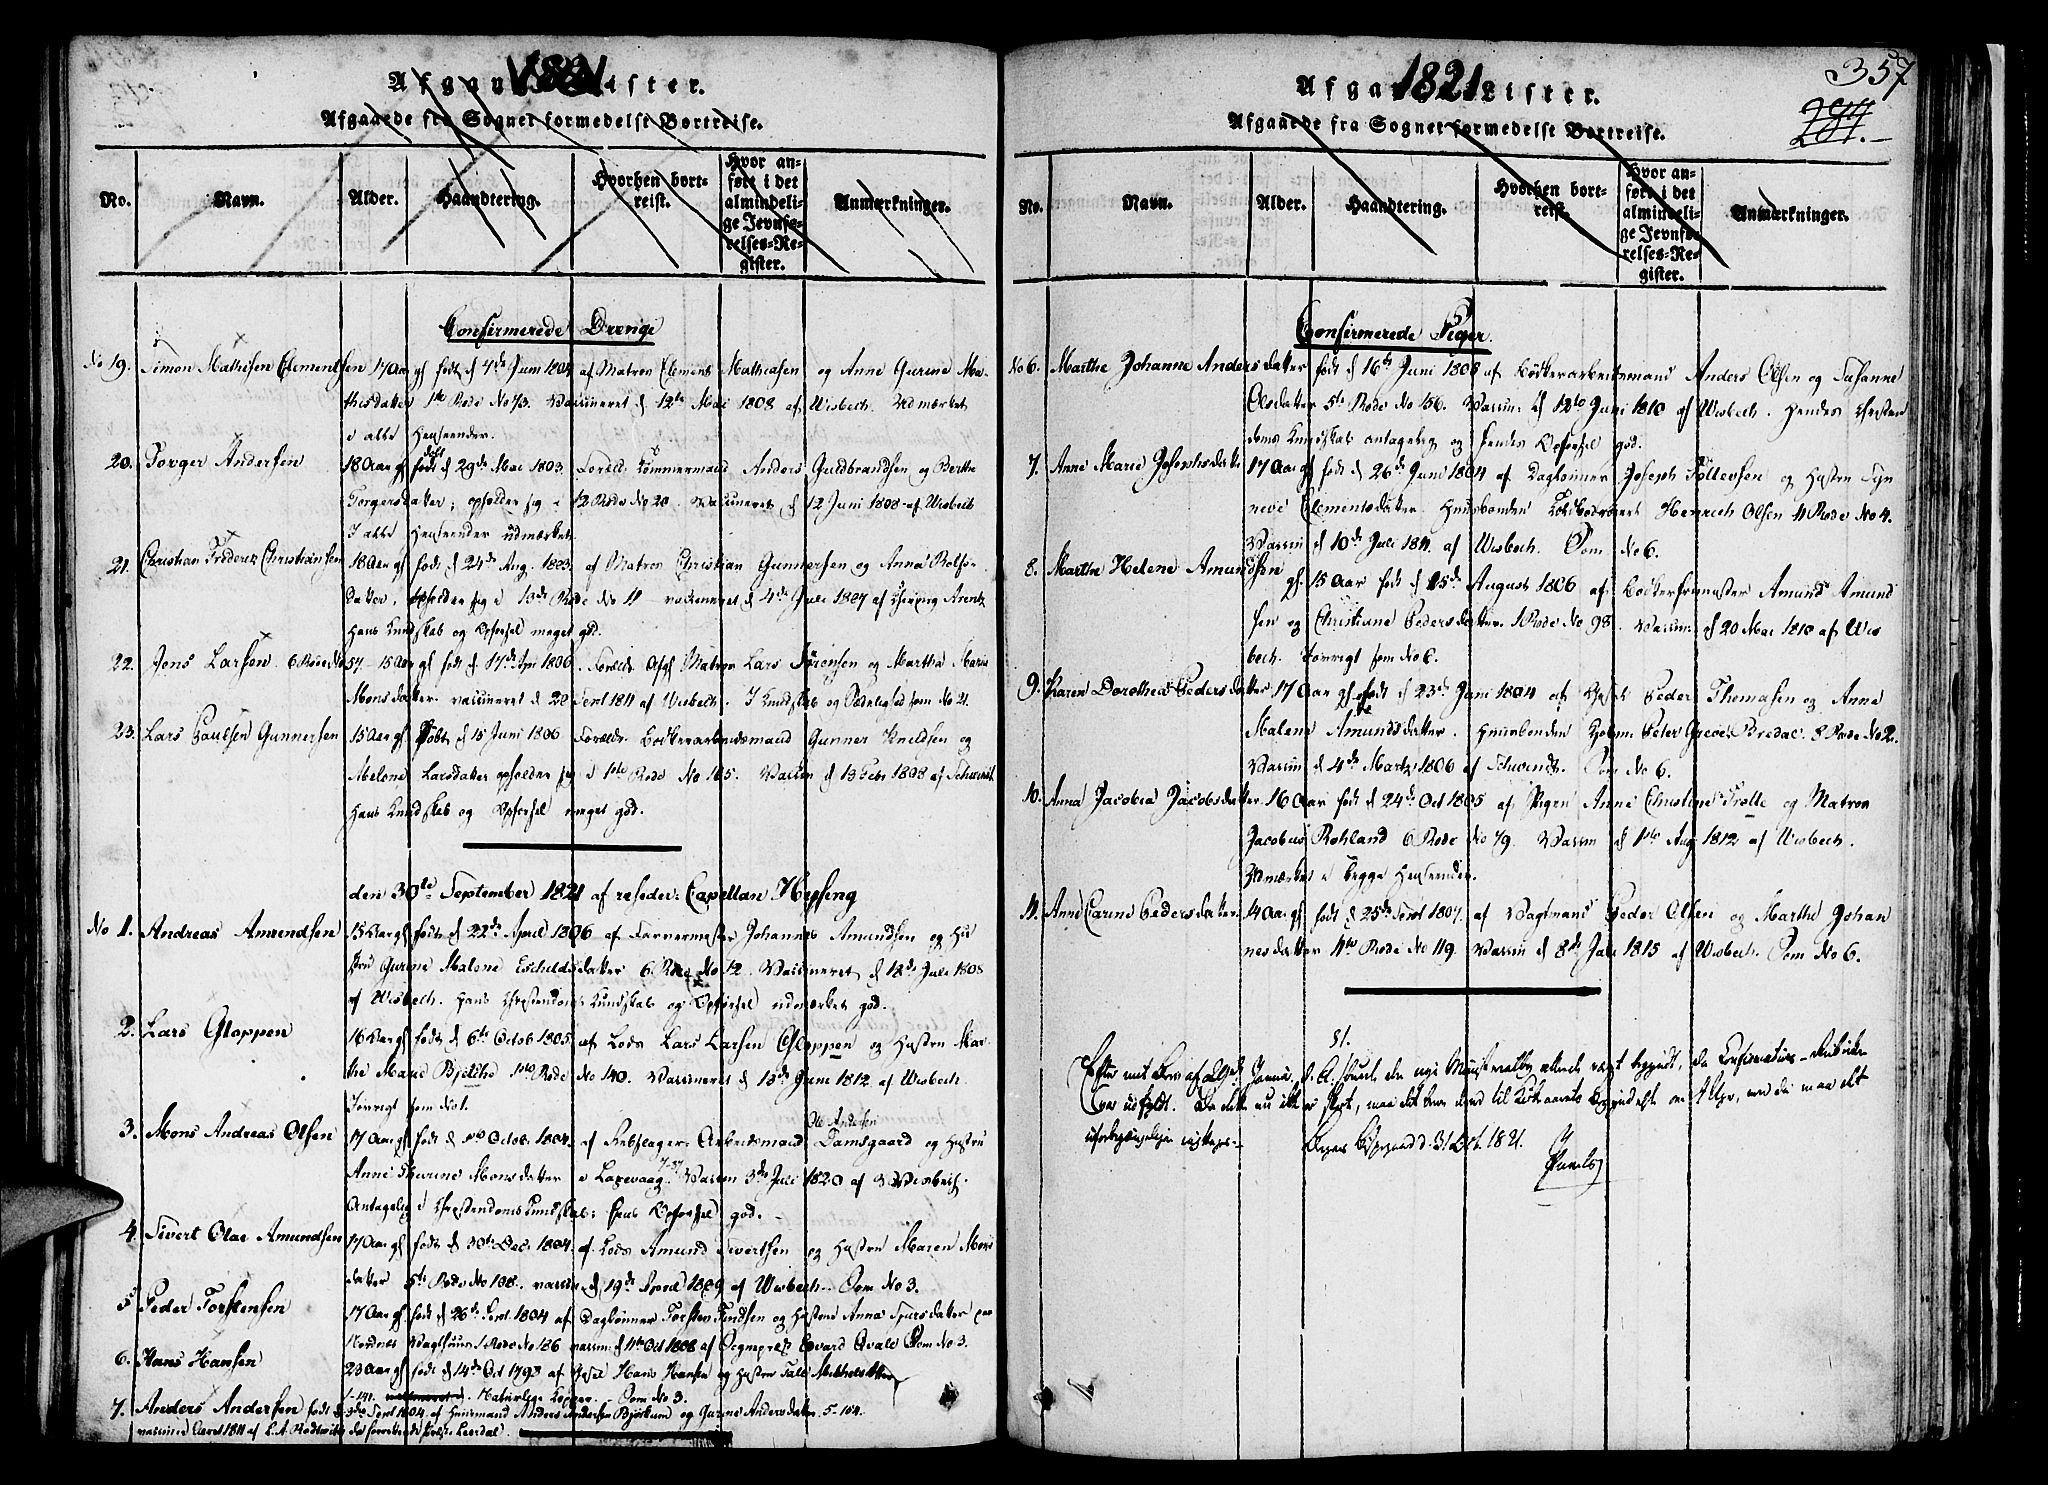 1821
Afgangs Lister.
Afgaaede fra Sognet formedelst Bortreise.
No.
Navn.
Alder.
Haandtering.
Hvorhen bort-
reist.
Hvor an-
ført i det
almindeli-
ge Jevnfø-
relses-Re-
gister.
Anmærkninger.
Confirmerede Drenge
No 19. Simon Mathisen Clementsen 17 Aar gl født d 7de Juni 1804 af Matros Clement Mathiasen og Anne Gurine Ma-
thisdatter 1ste Rode No 73. Vaccineret d 12te Mai 1808 af Wisbech. Udmærket
i alle Henseender.
20. Torger Andersen 18 Aar gl født d 29de Mai 1803. Foræld: Tømmermand Anders Guldbrandsen og Berthe
Torgersdatter; opholder sig i 12 Rode No 20. Vaccineret d 12 Juni 1808 af Wisbech
I alle Henseender udmærket.
21. Christian Frederik Christiansen 18 Aar gl født d 24de Aug. 1803. af Matros Christian Gunnersen og Anna Rolfs-
datter, opholder sig i 13de Rode No 11 vaccineret d 4de Juli 1807 af Chirurg Arentz
Hans Kundskab og Opførsel meget god.
22. Jens Larsen 6 Rode No 57 - 15 Aar gl født d 17de Apr 1806. Foræld: Matros Lars Sørensen og Martha Maria
Monsdatter vaccineret d 20 Sept 1811 af Wisbech. I Kundskab og Sædelighed som No 21.
23. Lars Paulsen Gunnersen 15 Aar gl født d 15 Juni 1806 Foræld: Bødkerarbeidsmand Gunner Kneldsen og
Melone Larsdatter opholder sig i 1ste Rode No 165. Vaccin d 19 Febr 1808 af Schwindt
Hans Kundskab og Opførsel meget god.
den 30te September 1821 af reseder: Capellan Hysing
No 1. Andreas Amundsen 15 Aar gl født d 22de April 1806 af Farvermester Johannes Amundsen og Hu
stru Gurine Malene Escheldsdatter 6 Rode No 12. Vaccineret d 12de Juli 1808
af Wisbech. Hans Christendoms Kundskab og Opførsel udmærket god.
2. Lars Gloppen 16 Aar gl født d 6te Octob 1805 af Lods Lars Larsen Gloppen og Hustru Mar-
the Marie 1ste Rode No 140. Vaccineret d 13de Juni 1812 af Wisbech.
Iøvrigt som No 1.
3. Mons Andreas Olsen 17 Aar gl født d 1ste Octob. 1804. af Rebslager-Arbeidsmand Ole Andersen Damsgaard og Hustru
Anne Gurine Monsdatter i Laxevaag 7-37 Vaccin 3de Juli 1820 af Wisbech.
Antagelig i Christendomskundskab: hans Opførsel god.
4. Sivert Olai Amundsen 17 Aar gl født d 30te Dec. 1804. af Lods Amund Sivertsen og Hustru Maren Mons
datter 5te Rode No 108. vaccin: d 19de April 1809 af Wisbech. Som No 3.
5 Peder Torstensen 17 Aar gl født d 26de Sept 1804 af Daglønner Torsten Knudsen og Hustrue Anna Sjursdatter
Nordnes Vagthuus 1 Rode No 186 vaccin: d 11te Oct 1808 af Sognepræst Edvard Qvale Som No 3.
6. Hans Hansen 23 Aar gl født d 14de Oct 1798 af Hans Hansen og Hustru Mikkelsdatter
1-141. Naturlige Kopper. Som No 3.
7. Anders Andersen født d 3de Sept 1804 af Huusmand Anders Andersen Bjørkum og Gurine Andersdatter 5-104.
vaccine Aaret 1811 af L.A. Leerdal.
1821
357
Afgangs Lister.
Afgaaede fra Sognet formedelst Bortreise.
No.
Navn.
Alder.
Haandtering.
Hvorhen bort-
reist.
Hvor an-
ført i det
almindeli-
ge Jevnfø-
relses-Re-
gister.
Anmærkninger.
Confirmerede Piger.
No 6. Marthe Johanne Andersdatter født d 16de Juni 1806 af Bødkerarbeidsmand Anders Olsen og Susanne
Olsdatter 5te Rode No 156. Vaccin: d 12te Juni 1810 af Wisbech. Hendes Christen
doms Kundskab antagelig og hendes Opførsel god.
7. Anne Marie Josephsdatter 17 Aar gl født d 26de Juni 1804 af Dagløner Joseph Tollevsen og Hustru Syn
neve Clementsdatter Huusbonden Henrich Olsen 11 Rode No 4.
Vaccin d 10de Juli 1811. af Wisbech. Som No 6.
8. Marthe Helene Amundsen gl. 15 Aar født d 15de August 1806 af Bødkerfrimester Amund Amund
sen og Christiane Pedersdatter. 1 Rode No 98. Vaccin: d 20 Mai 1810 af Wis
bech. Iøvrigt som No 6.
9. Karen Dorothea Pedersdatter 17 Aar gl født d 23de Juni 1804 af Peder Thomasen og Anne
Malene Amundsdatter. Huusbonden Kjøbm: Peter Greve Bredal. 8 Rode No 2.
Vaccin d 4de Marts 1806 af Schwindt. Som No 6.
10. Anna Jacobia Jacobsdatter 16 Aar født d 24de Oct 1805 af Pigen Anne Christine Trolle og Matros
Jacobus Rohland 6 Rode No 79. Vaccin d 1ste Aug 1812 af Wisbech.
Udmærket i begge Henseender.
11. Anne Carine Pedersdatter 14 Aar gl født d 25de Sept 1807. af Vagtmand Peder Olsen og Marthe Johan
nesdatter 11te Rode No 119. Vaccin d 8de Juli 1815 af Wisbech. Som No 6.
d. 31 Oct. 1821.